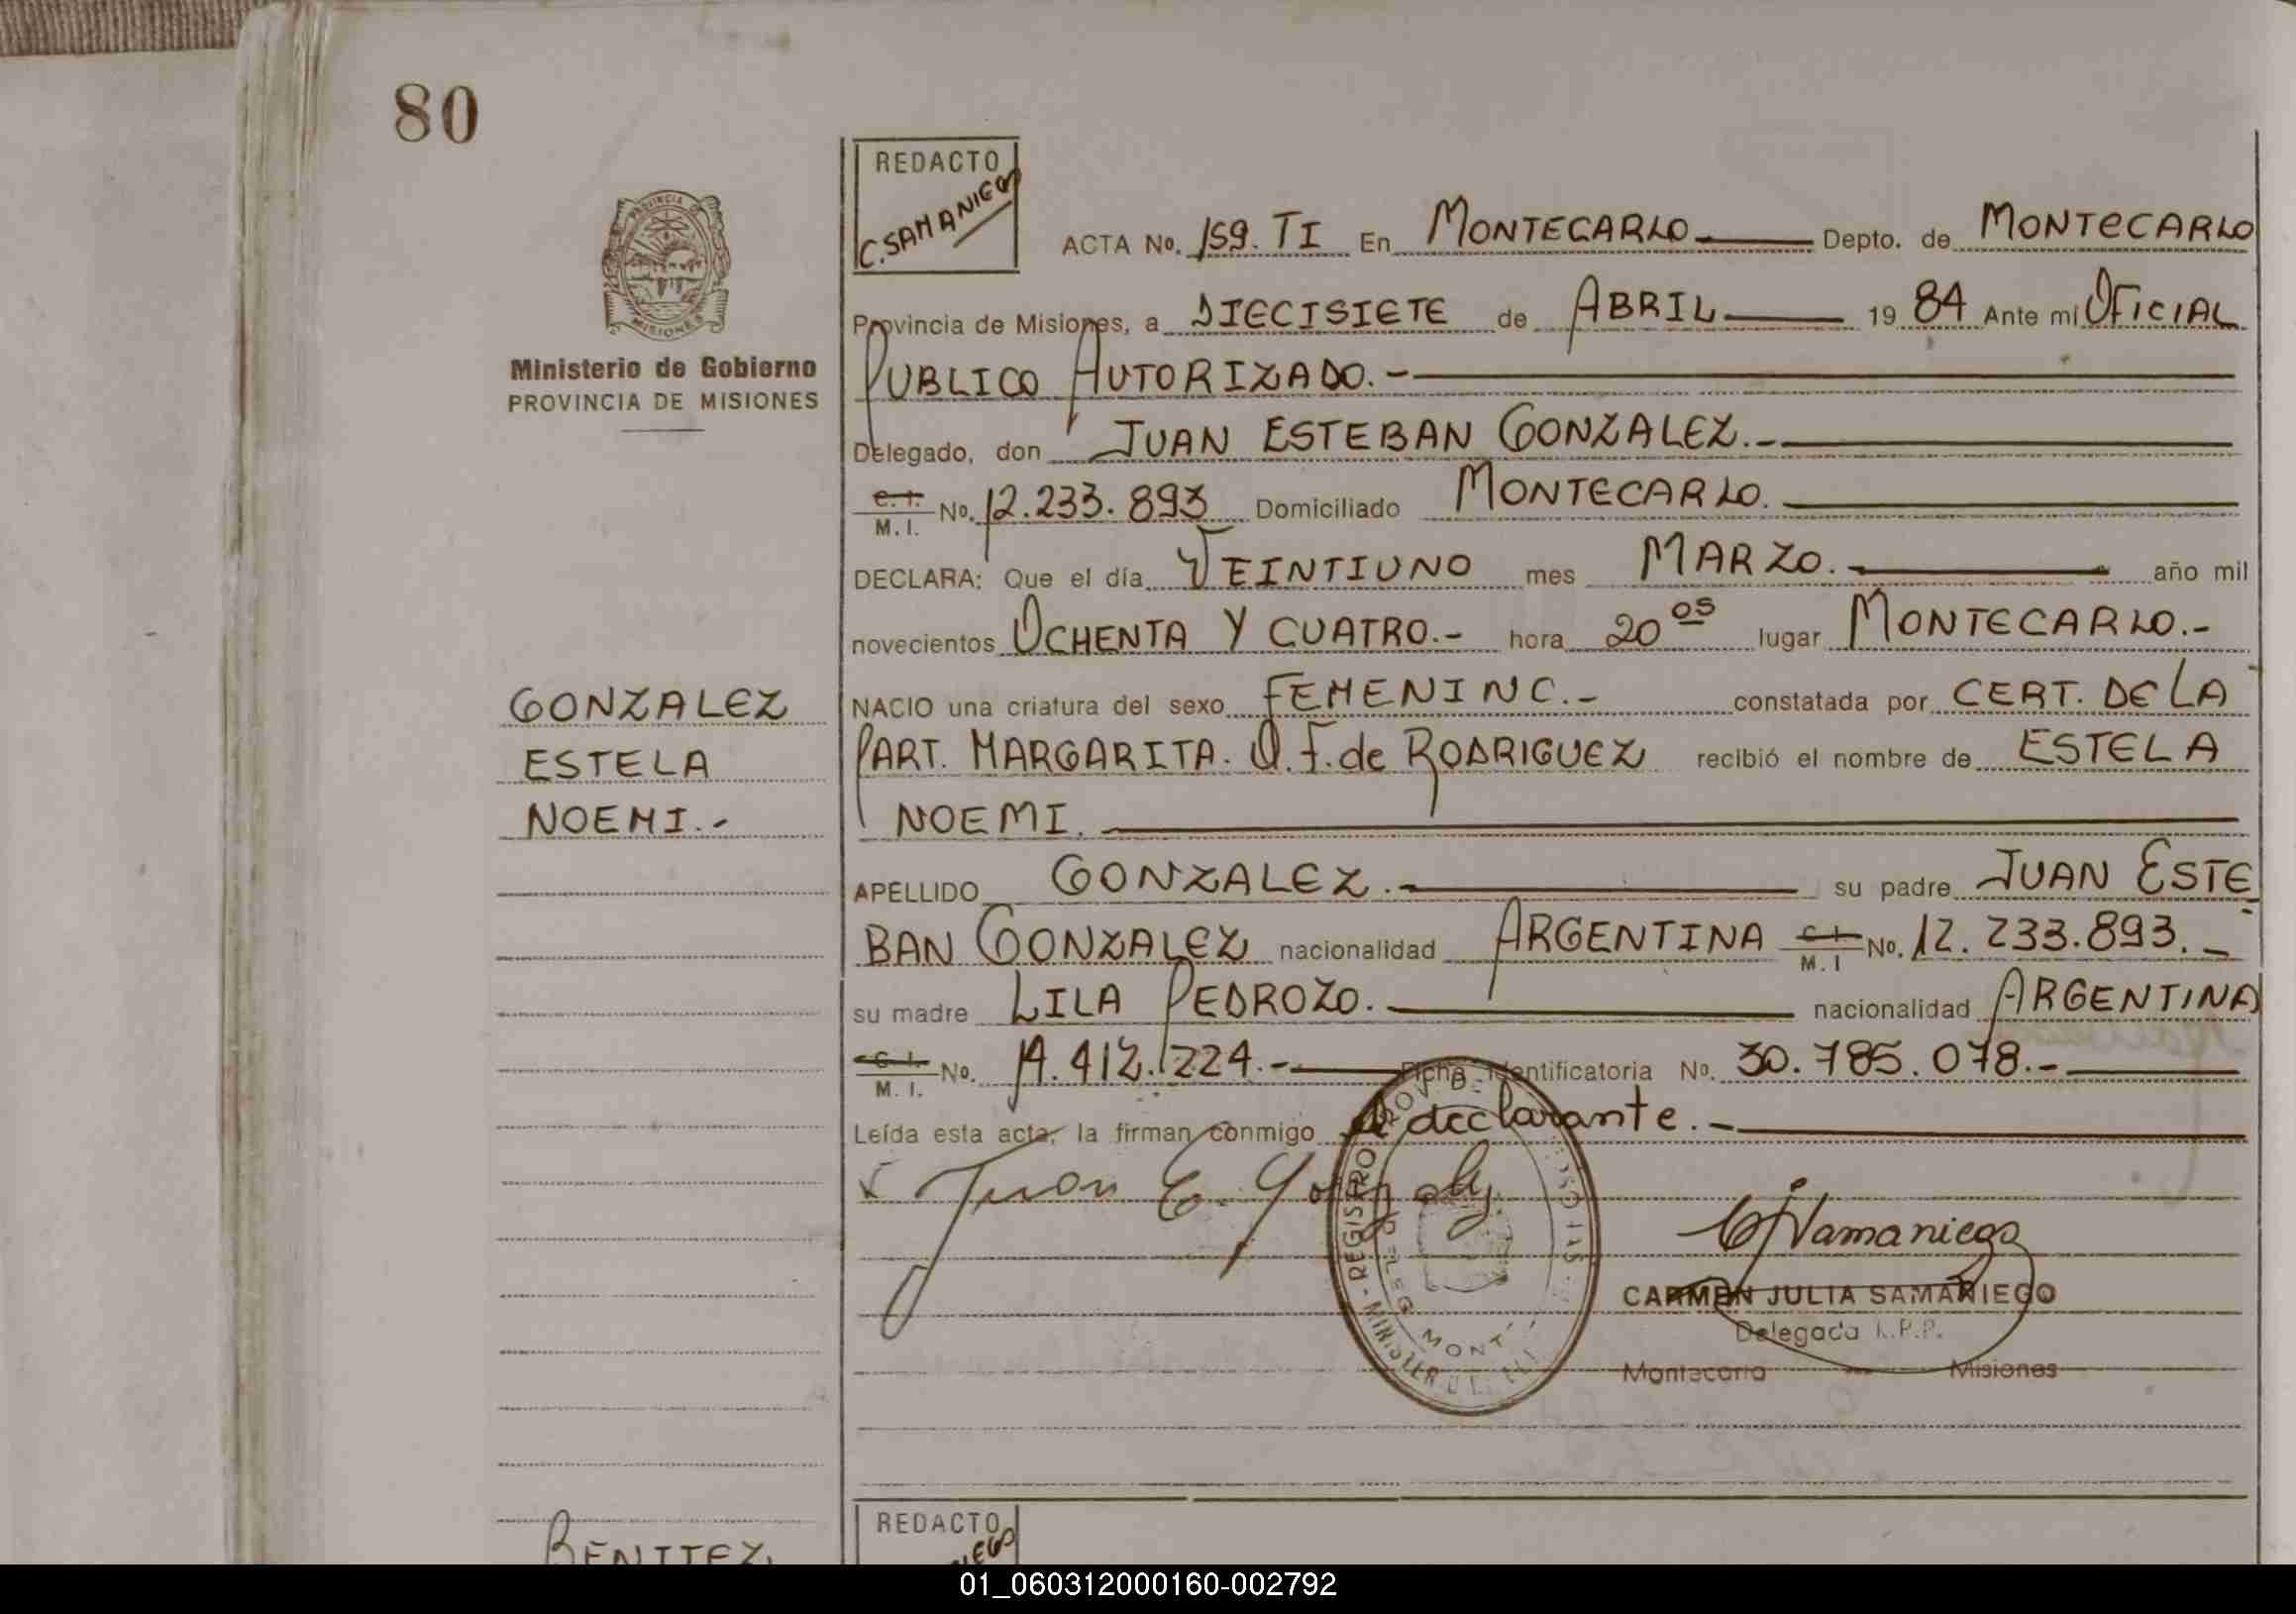 80
REDACTO
C. SAMANIEGO
PROVINCIA DE
MISIONES
Ministerio de Gobierno
PROVINCIA DE MISIONES
ACTA No. 159. TI En MONTECARLO Depto. de MONTECARLO
Provincia de Misiones, a DIECISIETE de ABRIL 19 84 Ante mi OFICIAL
PUBLICO AUTORIZADO.-
Delegado, don JUAN ESTEBAN GONZALEZ.-
C. I. M. I. No. 12.233.893 Domiciliado MONTECARLO.
DECLARA: Que el día VEINTIUNO mes MARZO. año mil
novecientos OCHENTA Y CUATRO.- hora 20 05 lugar MONTECARLO.-
GONZALEZ
ESTELA
NOEMI.-
NACIO una criatura del sexo FEMENINO.- constatada por CERT. DE LA
PART. MARGARITA. Q. F. de RODRIGUEZ recibió el nombre de ESTELA
NOEMI.
APELLIDO GONZALEZ.- su padre JUAN ESTE
BAN GONZALEZ nacionalidad ARGENTINA C. I. M. I No. 12.233.893.-
su madre LILA PEDROZO. nacionalidad ARGENTINA
C. I. M. I. No. 14.412.224.- Ficha Identificatoria No. 30.785.078.-
Leída esta acta, la firman conmigo el declarante.-
Juan E. Gonzalez.
CJSamaniego
CARMEN JULIA SAMANIEGO
Delegada R.P.P.
Montecarlo Misiones
REGISTRO PROV. DE
MINISTER
DELEG. MONT
BENITEZ,
REDACTO
01_060312000160-002792